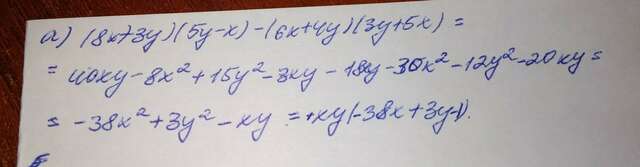 а) (8x+3y)(5y-x)-(6x+4y)(3y+5x)=
= 40xy-8x²+15y²-3xy-18y-30x²-12y²-20xy=
= -38x²+3y²-xy = xy(-38x+3y-1).